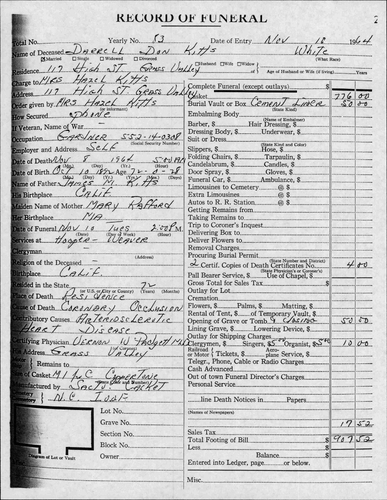 RECORD OF FUNERAL
Total No. Yearly No. 53 Date of Entry Nov 10 1964
Name of Deceased Darrell Don Kitts White
Married Single Widowed Divorced
Residence 117 High St Grass Valley
Husband Wife Widow Age of Husband or Wife (if living)
Charge to Mrs Hazel Kitts
Address 117 High St Grass Valley
Order given by Mrs Hazel Kitts
How Secured Phone
If Veteran, Name of War
Occupation Gardner 552-14-0308
(Social Security Number)
Employer and Address Self
Date of Death Nov 8 1964 5:00 AM
Date of Birth Oct 10 72-0-28
Name of Father James M. Kitts
His Birthplace Calif.
Maiden Name of Mother Mary Rafford
Her Birthplace MA
Date of Funeral Nov 10 Tues 2:00 PM
Services at Hooper-Weaver
Clergyman
(Address)
Religion of the Deceased
Birthplace Calif.
Resided in the State 72
(or U.S. or City or County) (Years) (Months)
Place of Death Residence
Cause of Death Coronary Occlusion
Contributory Causes Arteriosclerotic
Heart Disease
Certifying Physician Vernon W Padgett MD
His Address Grass Valley
Remains to
Size of Casket
Manufactured by Sacto Casket
N.C. IOOF
Lot No.
Grave No.
Section No.
Block No.
Owner
Diagram of Lot or Vault
Complete Funeral (except outlays) $
Casket 776 00
Burial Vault or Box Cement Liner 50 00
(State Kind)
Embalming Body
(Name of Embalmer)
Barber, $ Hair Dressing, $
Dressing Body, $ Underwear, $
Suit or Dress
(State Kind and Color)
Slippers, $ Hose, $
Folding Chairs, $ Tarpaulin, $
Candles, $ Candelabrum, $
Door Spray, $ Gloves, $
Funeral Car, $ Ambulance, $
Limousines to Cemetery @ $
Extra Limousines @ $
Autos to R. R. Station @ $
Getting Remains from
Taking Remains to
Trip to Coroner's Inquest
Delivering Box to
Deliver Flowers to
Removal Charges
Procuring Burial Permit
(State Number and District)
2 Certif. Copies of Death Certificates No. 4 00
(State Physician's or Coroner's)
Pall Bearer Service, $ Use of Chapel, $
Gross Total for Sales Tax $
Outlay for Lot
Cremation
Flowers, $ Palms, $ Matting, $
Rental of Tent, $ of Temporary Vault, $
Opening of Grave or Tomb & Closing 50 50
Lining Grave, $ Lowering Device, $
Outlay for Shipping Charges
Clergymen, $ Singers, $5.00 Organist, $5.00 10 00
Railroad or Motor Tickets, $ Aeroplane Service, $
Telegr., Phone, Cable or Radio Charges
Cash Advanced
Out of town Funeral Director's Charges
Personal Service
line Death Notices in Papers
(Names of Newspapers)
Sales Tax 17 52
Total Footing of Bill $ 907 52
Less Balance
Entered into Ledger, page or below.
Misc.